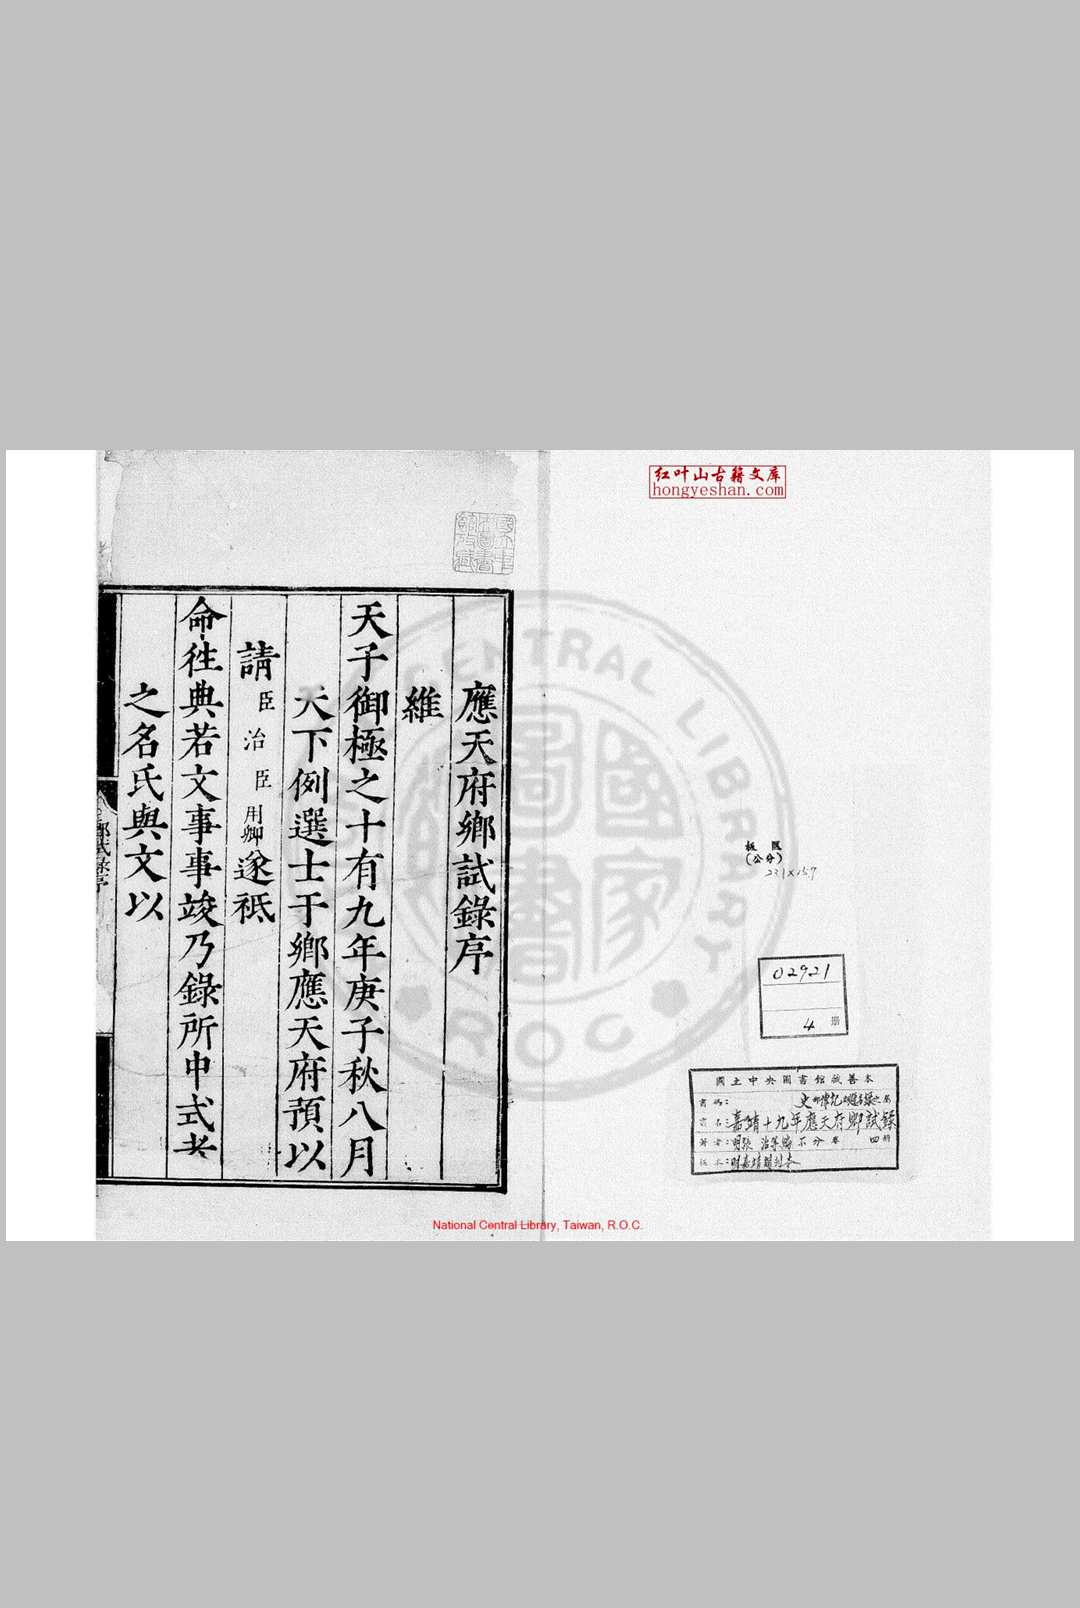 红叶山古籍文库
hongyeshan.com
CENTRAL LIBRARY
國家圖書
R.O.C
板匡
(公分)
23.1×15.7
02921
4 冊
國立中央圖書館藏善本
書碼:史部傳記類
書名:嘉靖十九年應天府鄉試錄
著者:明張治等編 不分卷 四冊
版本:明嘉靖間刊本
應天府鄉試錄序
維
天子御極之十有九年庚子秋八月
天下例選士于鄉應天府預以
請臣治臣用卿遂祗
命往典若文事事竣乃錄所中式者
之名氏與文以
鄉試錄序
National Central Library, Taiwan, R.O.C.